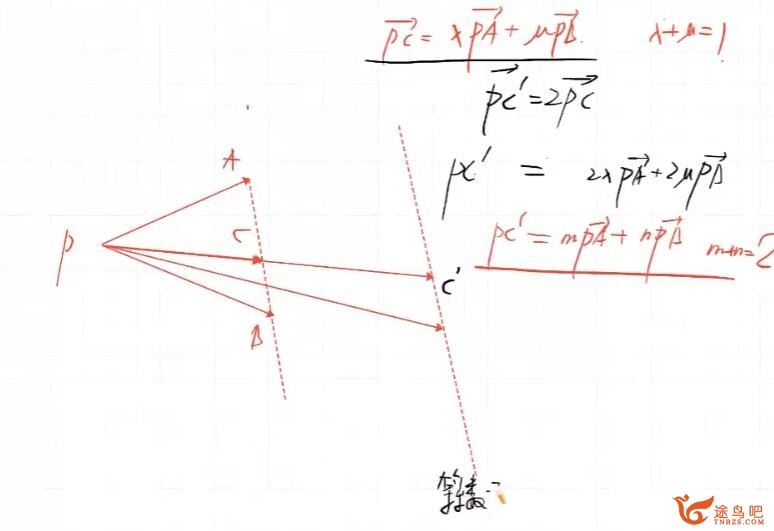 PC = xPA + μPB x+μ=1
PC' = 2PC
PC' = 2xPA + 2μPB
PC' = mPA + nPB m+n=2
A
P
C
C'
B
途鸟吧
TNBZS.COM